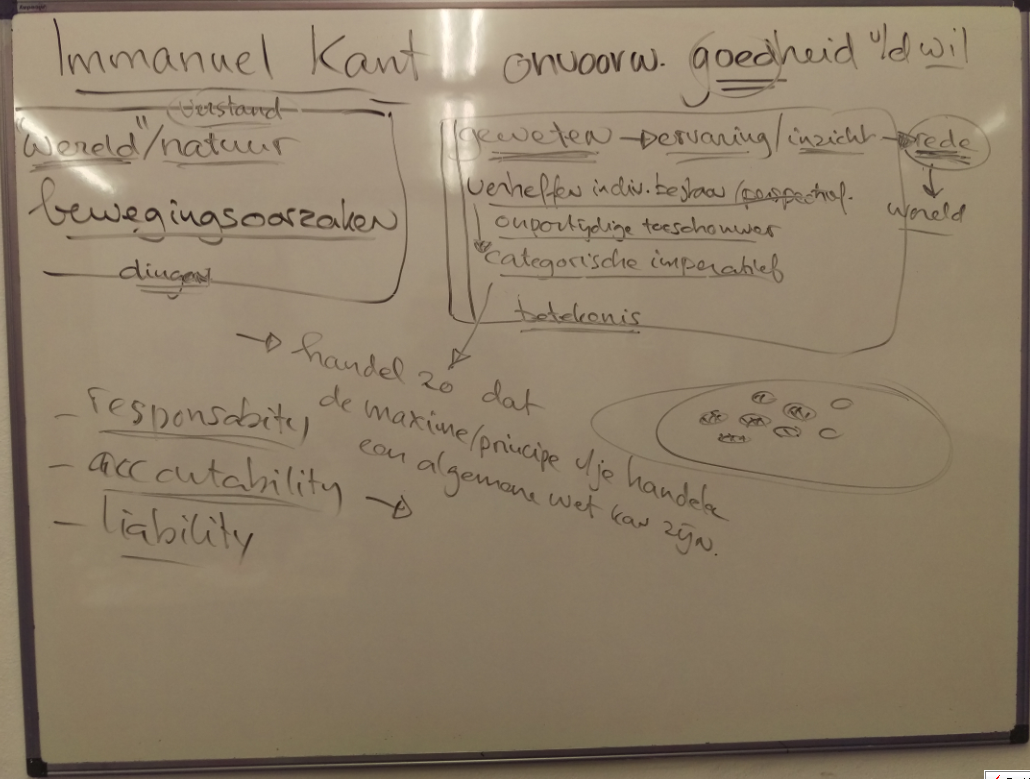 Immanuel Kant onvoorw. goedheid v/d wil
verstand
"wereld"/natuur
bewegingsoorzaken
dingen
geweten → ervaring/inzicht → rede
wereld
verheffen indiv. bestaan/perspectief.
onpartijdige toeschouwer
categorische imperatief
betekenis
→ handel zo dat
de maxime/principe v/je handelen
een algemene wet kan zijn.
- responsabity
- accoutability →
- liability